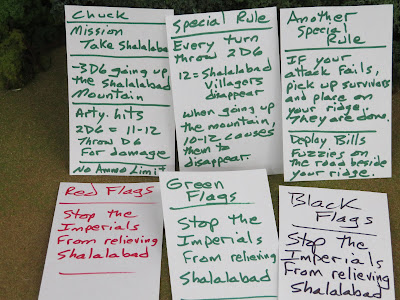 Chuck
Mission
Take Shalalabad
-3D6 going up
the Shalalabad
Mountain
Arty. hits
2D6 = 11-12
Throw D6
For damage
No Ammo Limit
Special Rule
Every turn
throw 2D6
12 = Shalalabad
Villagers
disappear
when going up
the mountain,
10-12 causes
them to
disappear.
Another
Special
Rule
IF your
attack fails,
pick up survivors
and place on
your ridge.
They are done.
Deploy Bills
Fuzzies on
the road beside
your ridge.
Red Flags
Stop the
Imperials
From relieving
Shalalabad
Green
Flags
Stop the
Imperials
From relieving
Shalalabad
Black
Flags
Stop the
Imperials
From relieving
Shalalabad